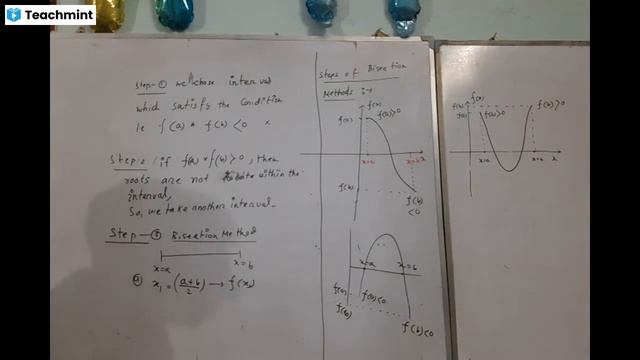 Teachmint
Step-① we chose interval
which satisfs the condition
ie f(a) * f(b) < 0 x
Step:2: if f(a) * f(b) > 0, then
roots are not within the
interval,
So, we take another interval.
Step-③ Bisection Method
x=a x=b
x₁ = (a+b/2) → f(x₁)
Steps of Bisection
Methods :-
f(x)
f(a) f(a)>0
x=a x=b x
f(b) f(b)
<0
x=a x=b
f(a) f(a)<0
f(b) f(b)<0
f(x)
f(b) f(b)>0
f(a) f(a)>0
x=a x=b x